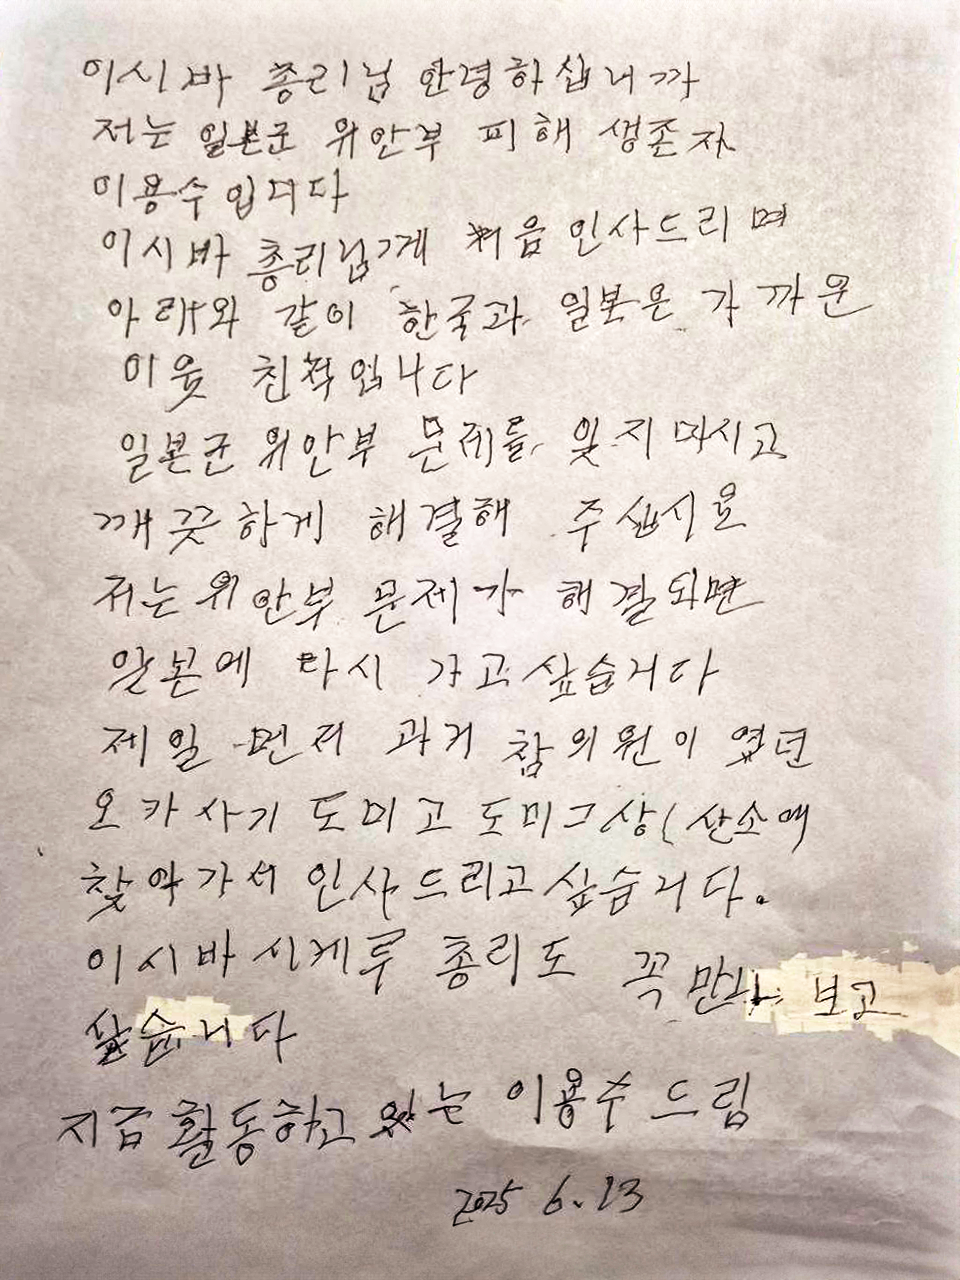 이시바 총리님 안녕하십니까
저는 일본군 위안부 피해 생존자
이용수입니다
이시바 총리님께 처음 인사드리며
아래와 같이 한국과 일본은 가까운
이웃 친척입니다
일본군 위안부 문제를 잊지마시고
깨끗하게 해결해 주십시요
저는 위안부 문제가 해결되면
일본에 다시 가고 싶습니다
제일 먼저 과거 참의원이였던
오카사기 도미고 도미그상( 산소에
찾아가서 인사드리고 싶습니다.
이시바 시게루 총리도 꼭 만나 보고
싶습니다
지금 활동하고 있는 이용수 드림
2025 6.13